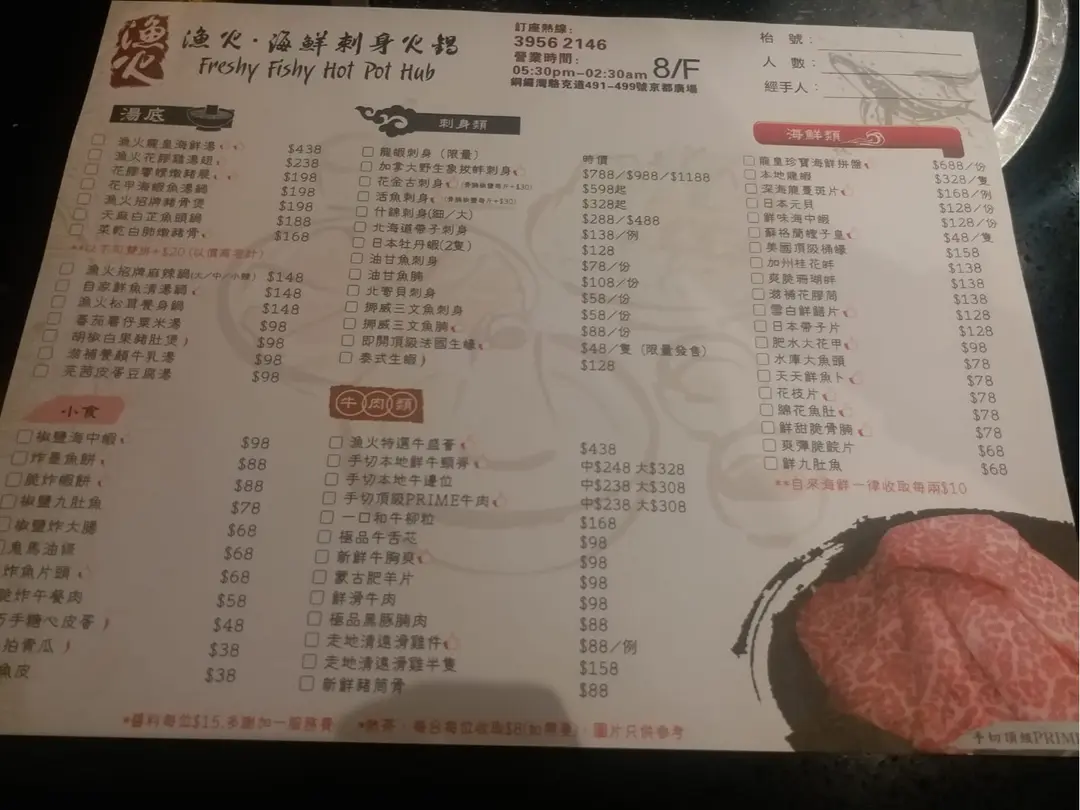 漁火
漁火·海鮮刺身火鍋
Freshy Fishy Hot Pot Hub
訂座熱線:
3956 2146
營業時間:
05:30pm-02:30am 8/F
銅鑼灣駱克道491-499號京都廣場
枱 號:
人 數:
經手人:
湯底
漁火龍皇海鮮湯 $438
漁火花膠雞湯翅 $238
花膠響螺燉豬𦟌 $198
花甲海蝦魚湯鍋 $198
漁火招牌豬骨煲 $198
天麻白芷魚頭鍋 $188
菜乾白肺燉豬骨 $168
**以下可雙拼+$20 (以價高者計)
漁火招牌麻辣鍋(大/中/小辣) $148
自家鮮魚漬湯鍋 $148
漁火松茸養身鍋 $148
番茄薯仔粟米湯 $98
胡椒白果豬肚煲 $98
滋補養顏牛乳湯 $98
芫茜皮蛋豆腐湯 $98
小食
椒鹽海中蝦 $98
炸墨魚餅 $88
脆炸蝦餅 $88
椒鹽九肚魚 $78
椒鹽炸大腸 $68
鬼馬油條 $68
炸魚片頭 $68
脆炸午餐肉 $58
巧手糖心皮蛋 $48
拍青瓜 $38
魚皮 $38
刺身類
龍蝦刺身 (限量) 時價
加拿大野生象拔蚌刺身 $788/$988/$1188
花金古刺身 $598起
活魚刺身 $328起
什錦刺身(細/大) $288/$488
北海道帶子刺身 $138/例
日本牡丹蝦(2隻) $128
油甘魚刺身 $78/份
油甘魚腩 $108/份
北寄貝刺身 $58/份
挪威三文魚刺身 $58/份
挪威三文魚腩 $88/份
即開頂級法國生蠔 $48/隻 (限量發售)
泰式生蝦 $128
牛肉類
漁火特選牛盛薈 $438
手切本地鮮牛頸脊 中$248 大$328
手切本地牛邊位 中$238 大$308
手切頂級PRIME牛肉 中$238 大$308
一口和牛柳粒 $168
極品牛舌花 $98
新鮮牛胸爽 $98
蒙古肥羊片 $98
鮮滑牛肉 $98
極品黑豚腩肉 $88
走地清遠滑雞件 $88/例
走地清遠滑雞半隻 $158
新鮮豬筒骨 $88
海鮮類
龍皇珍寶海鮮拼盤 $688/份
本地龍蝦 $328/隻
深海龍躉斑片 $168/例
日本元貝 $128/份
鮮味海中蝦 $128/份
蘇格蘭蟶子皇 $48/隻
美國頂級桶蠔 $158
加州桂花蚌 $138
爽脆珊瑚蚌 $138
滋補花膠筒 $138
雪白鮮鱔片 $128
日本帶子片 $128
肥水大花甲 $98
水庫大魚頭 $78
天天鮮魚卜 $78
花枝片 $78
腍花魚肚 $78
鮮甜脆骨腩 $78
爽彈脆鯇片 $68
鮮九肚魚 $68
**自來海鮮一律收取每両$10
*醬料每位$15,多謝加一服務費 *熱茶,每台每位收取$8(如需要) 圖片只供參考
手切頂級PRIME